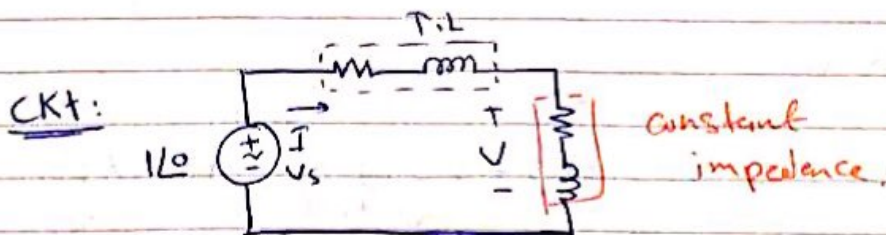 T.L
CKt:
+
I
+
V
-
1∠0
~
-
Vs
constant
impedence.